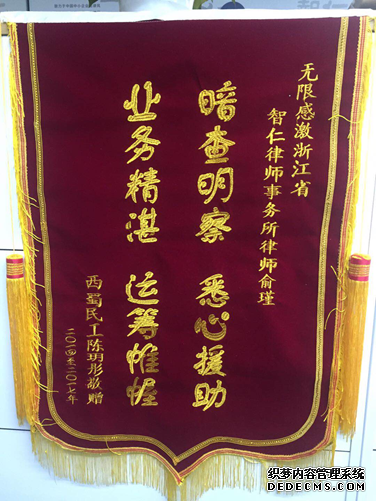 无限感激浙江省
智仁律师事务所律师俞瑾
暗查明察 悉心援助
业务精湛 运筹帷幄
西蜀民工陈玥彤敬赠
二〇一四至二〇一七年
织梦内容管理系统
DEDECMS.COM